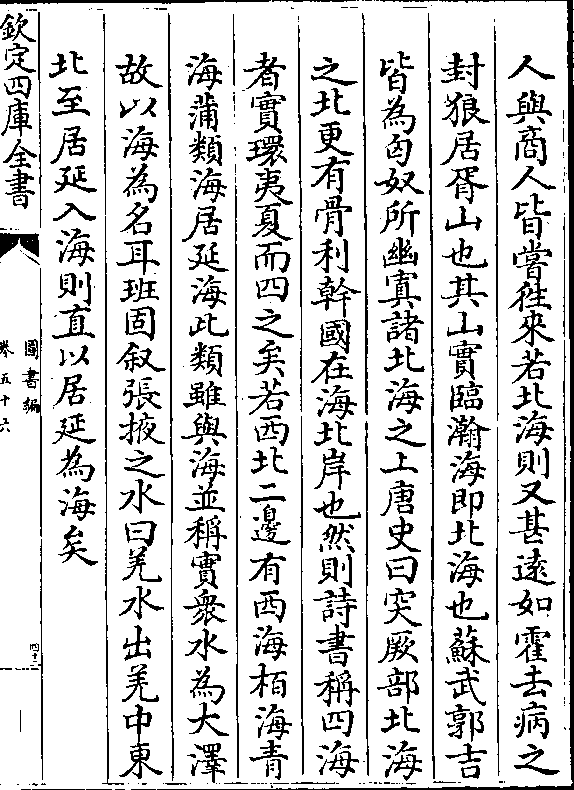 人與商人皆嘗徃來若北海則又甚逺如霍去病之
封狼居胥山也其山實臨瀚海即北海也蘇武郭吉
皆為匈奴所幽寘諸北海之上唐史曰突厥部北海
之北更有骨利幹國在海北岸也然則詩書稱四海
者實環夷夏而四之矣若西北二邊有西海栢海青
海蒲類海居延海此類雖與海並稱實衆水為大澤
故以海為名耳班固叙張掖之水曰羌水出羌中東
北至居延入海則直以居延為海矣
欽定四庫全書
圖書編
卷五十六